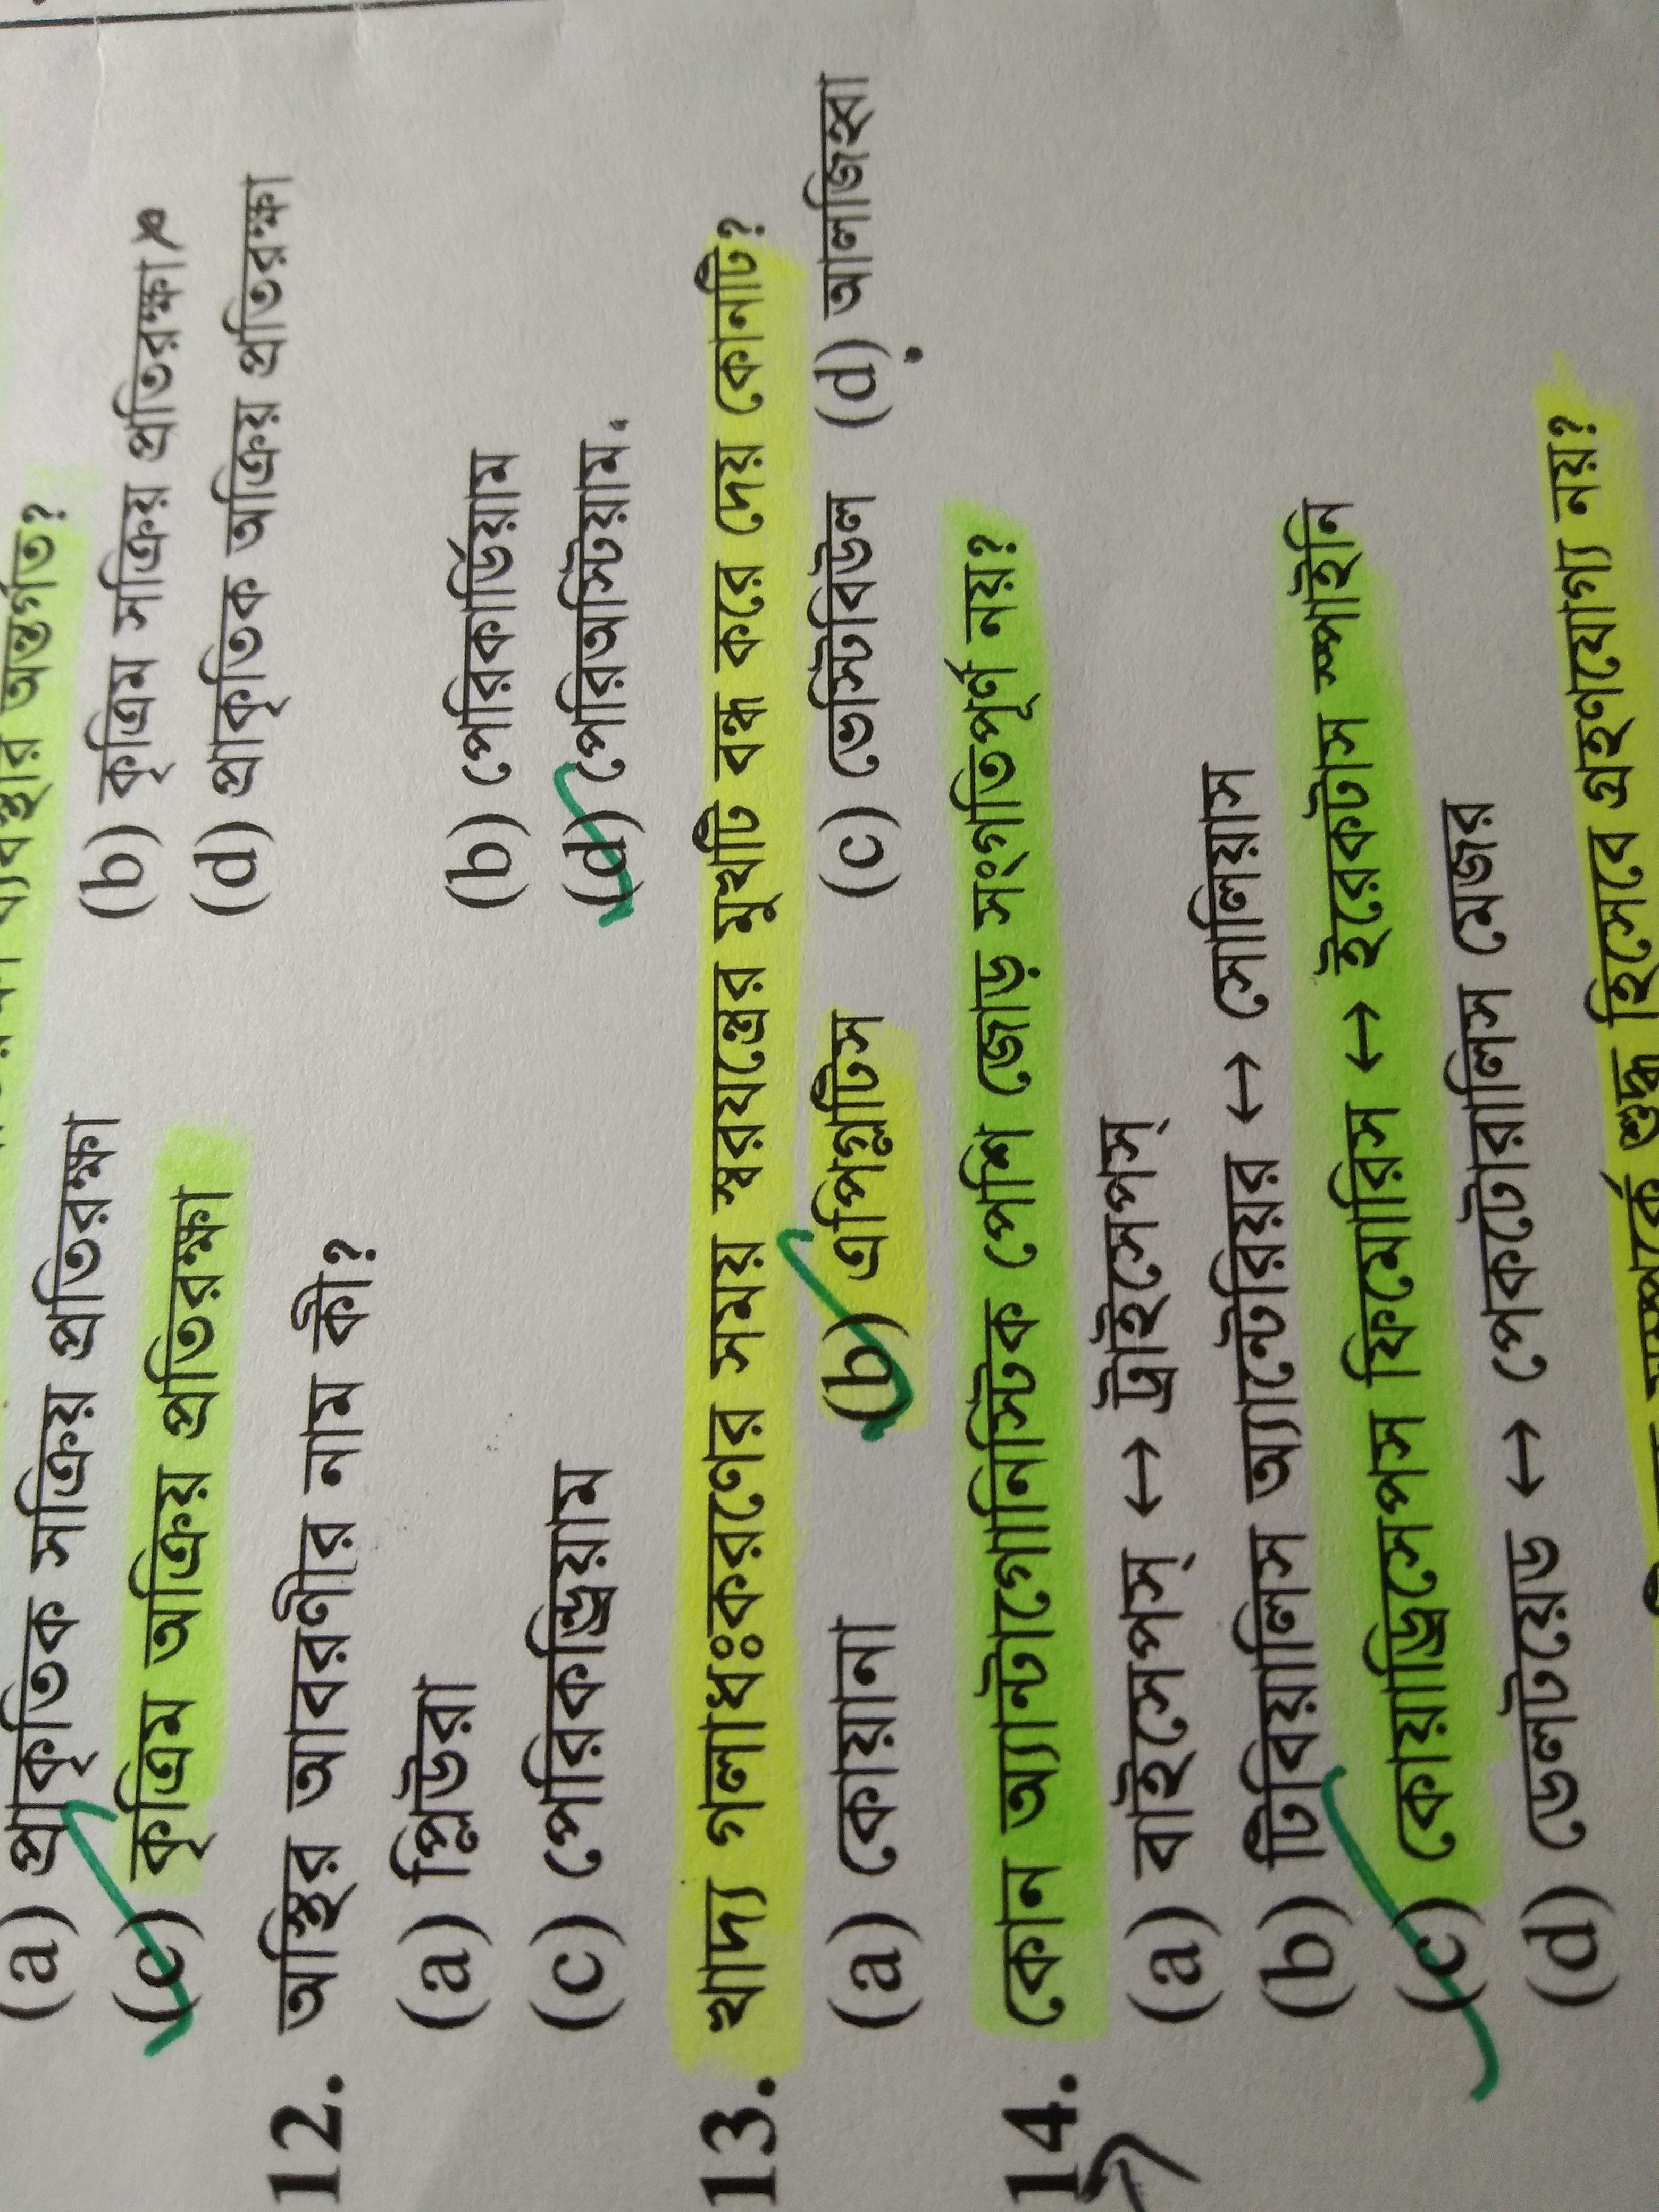 ব্যবস্থার অন্তর্গত?
(a) প্রাকৃতিক সক্রিয় প্রতিরক্ষা (b) কৃত্রিম সক্রিয় প্রতিরক্ষা
(c) কৃত্রিম অক্রিয় প্রতিরক্ষা (d) প্রাকৃতিক অক্রিয় প্রতিরক্ষা
12. অস্থির আবরণীর নাম কী?
(a) প্লিউরা (b) পেরিকার্ডিয়াম
(c) পেরিকন্ড্রিয়াম (d) পেরিঅস্টিয়াম.
13. খাদ্য গলাধঃকরণের সময় স্বরযন্ত্রের মুখটি বন্ধ করে দেয় কোনটি?
(a) কোয়ানা (b) এপিগ্লটিস (c) ভেস্টিবিউল (d) আলজিহ্বা
14. কোন অ্যান্টাগোনিস্টিক পেশি জোড় সংগতিপূর্ণ নয়?
(a) বাইসেপস্ ↔ ট্রাইসেপস্
(b) টিবিয়ালিস অ্যান্টেরিয়র ↔ সোলিয়াস
(c) কোয়াড্রিসেপস ফিমোরিস ↔ ইরেকটাস স্পাইনি
(d) ডেলটয়েড ↔ পেকটোরালিস মেজর
সম্পর্কে শুদ্ধ হিসেবে গ্রহণযোগ্য নয়?